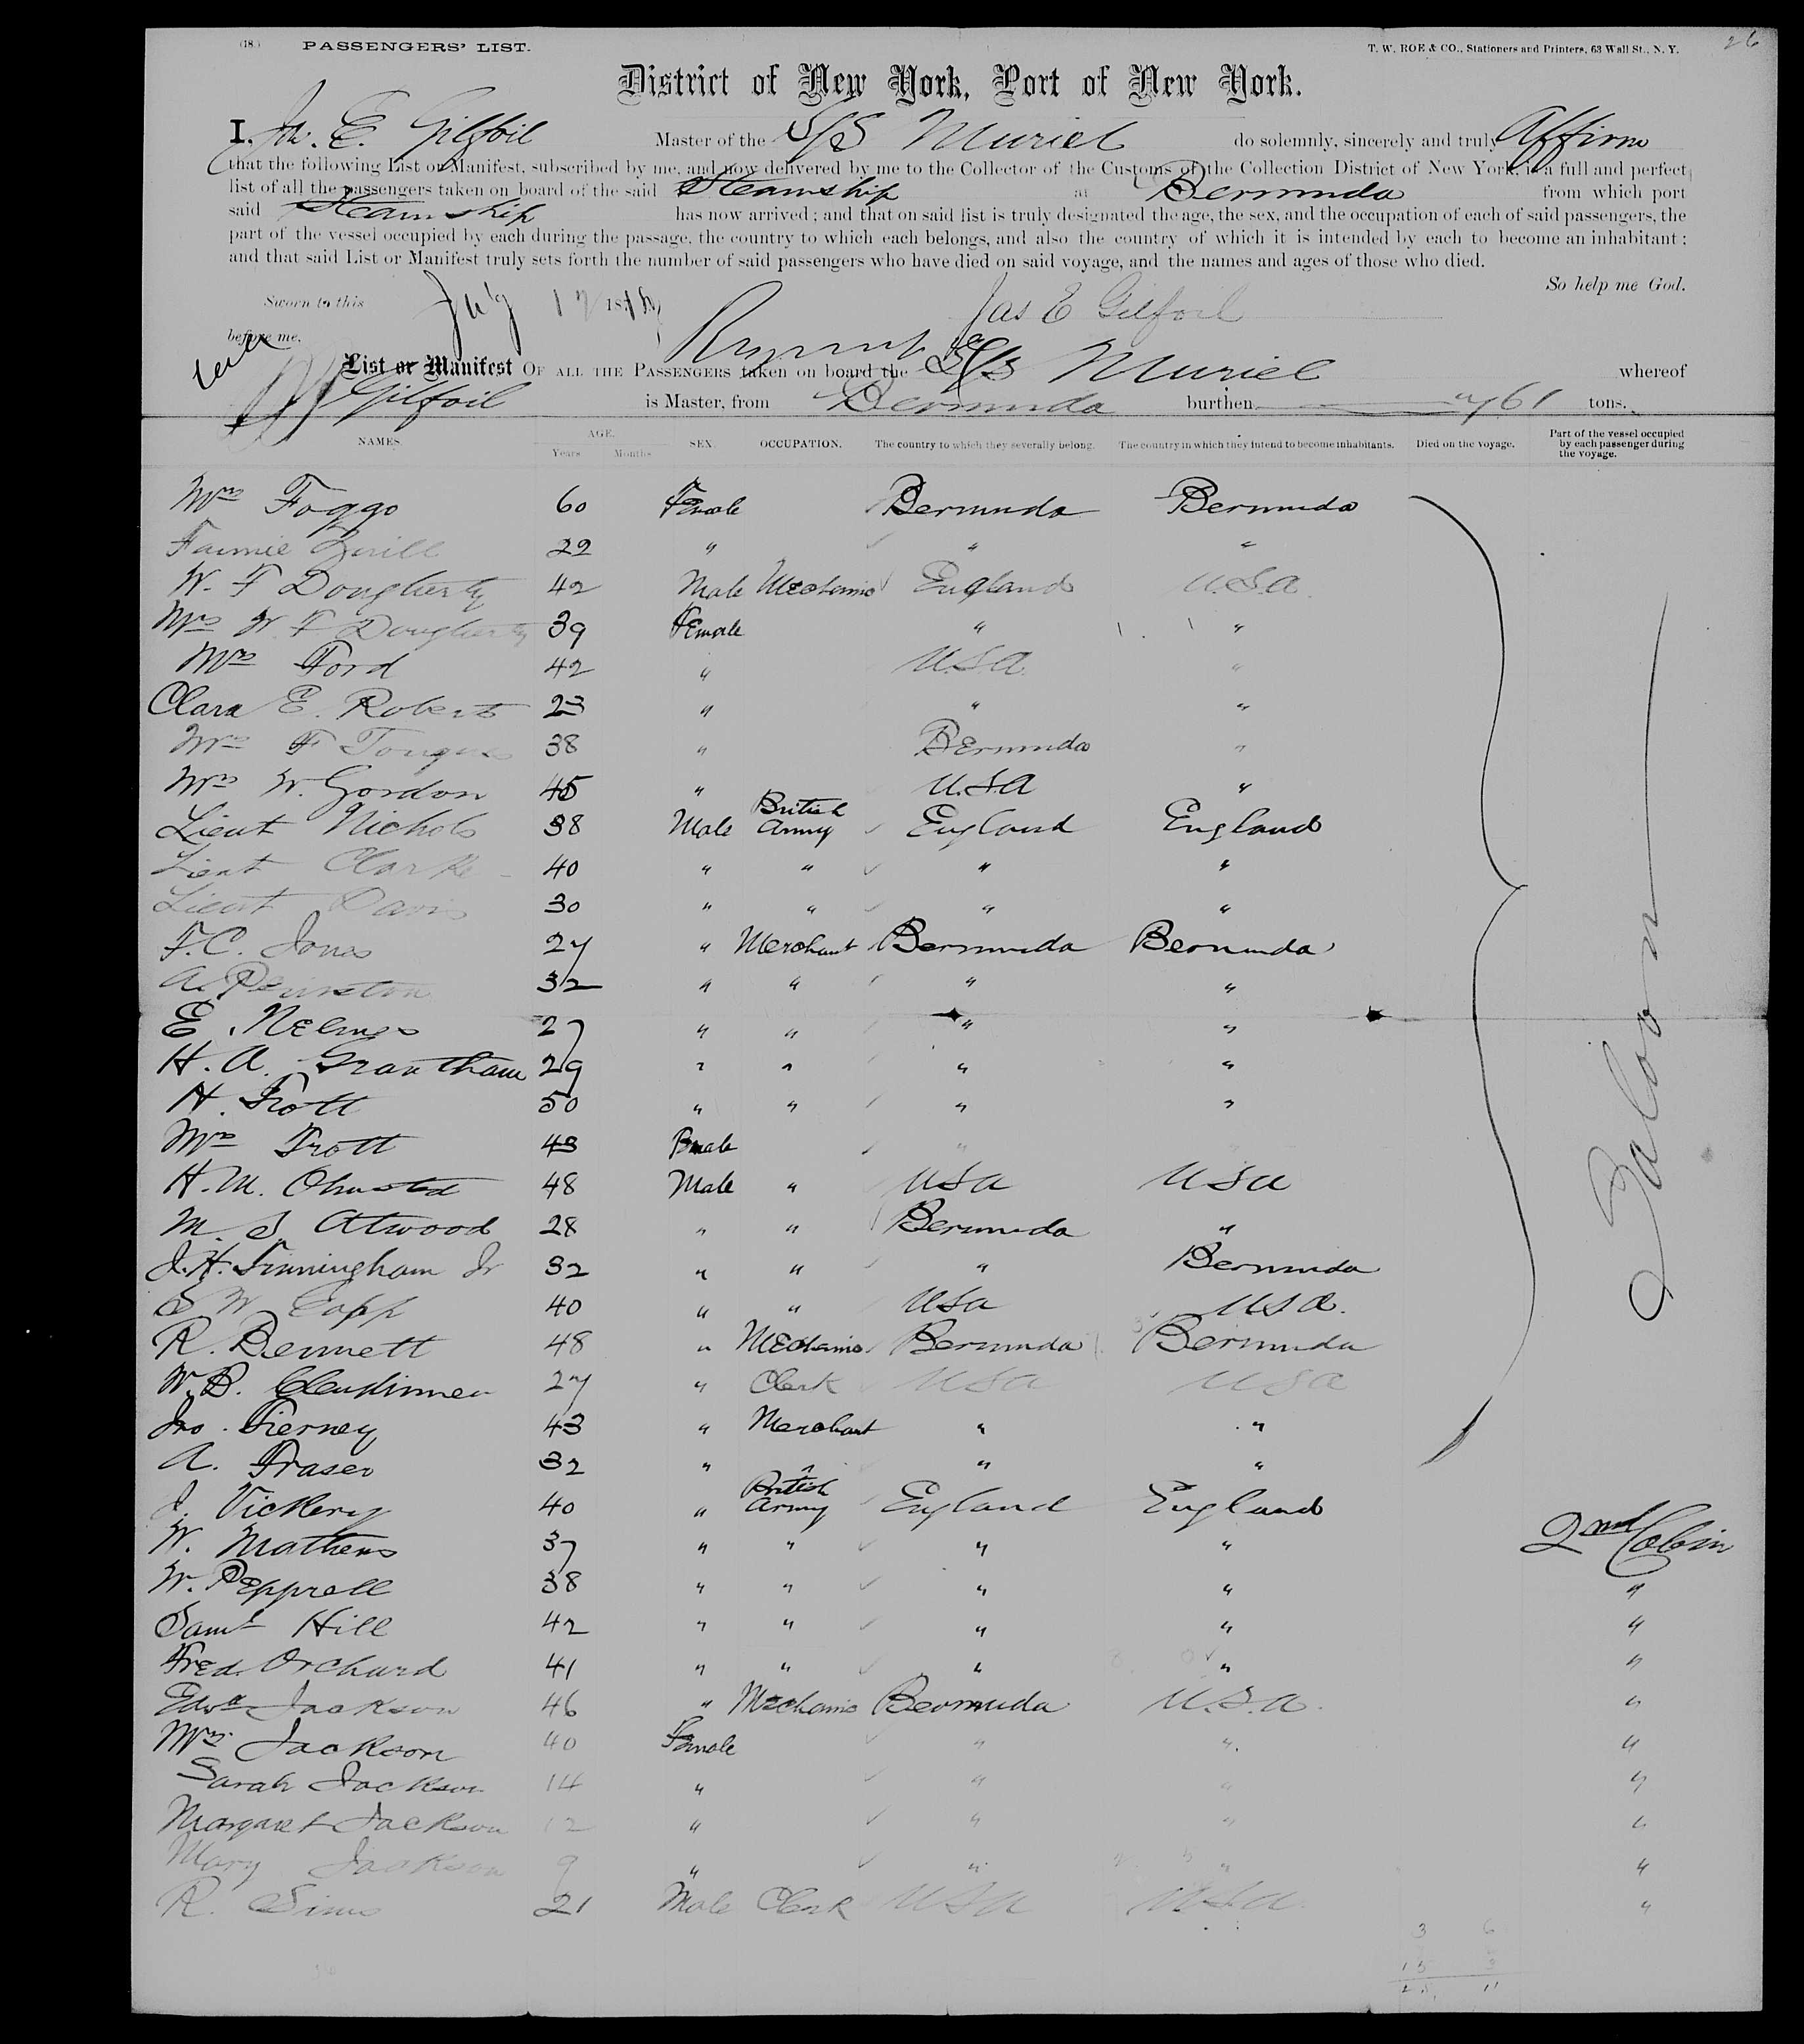 (18.) PASSENGERS' LIST. T. W. ROE & CO., Stationers and Printers, 63 Wall St., N. Y. 26
District of New York, Port of New York.
I, Ja. E. Gilfoil Master of the S/S Muriel do solemnly, sincerely and truly Affirm
that the following List or Manifest, subscribed by me, and now delivered by me to the Collector of the Customs of the Collection District of New York, is a full and perfect
list of all the passengers taken on board of the said Steamship at Bermuda from which port
said Steamship has now arrived; and that on said list is truly designated the age, the sex, and the occupation of each of said passengers, the
part of the vessel occupied by each during the passage, the country to which each belongs, and also the country of which it is intended by each to become an inhabitant;
and that said List or Manifest truly sets forth the number of said passengers who have died on said voyage, and the names and ages of those who died.
So help me God.
Sworn to this 18 Jas E Gilfoil
before me,
List or Manifest OF ALL THE PASSENGERS taken on board the S/S Muriel whereof
Gilfoil is Master, from Bermuda burthen 761 tons.
NAMES. AGE. Years Months SEX. OCCUPATION. The country to which they severally belong. The country in which they intend to become inhabitants. Died on the voyage. Part of the vessel occupied by each passenger during the voyage.
Mrs Foggo 60 Female Bermuda Bermuda
Fannie 22 " " "
W. F Dougherty 42 Male Mechanic England U.S.A.
Mrs W. F Dougherty 39 Female " "
Mrs Ford 42 " U.S.A. "
Clara E. Roberts 23 " " "
Mrs F 38 " Bermuda "
Mrs W. Gordon 45 " U.S.A "
Lieut Nichols 38 Male British Army England England
Lieut Clarke 40 " " " "
Lieut Davis 30 " " " "
F.C. Jones 27 " Merchant Bermuda Bermuda
A. Peniston 32 " " " "
E. 27 " " " "
H. A. Grantham 29 " " " "
H. Trott 50 " " " "
Mrs Trott 43 Female "
H. M. Olmsted 48 Male " USA USA
M. S. Atwood 28 " " Bermuda "
J. H. Trimingham Jr 32 " " " Bermuda
S W Copp 40 " " USA USA.
R. Bennett 48 " Mechanic Bermuda Bermuda
W.B. 27 " Clerk USA USA
Jno. Tierney 43 " Merchant " "
A. Fraser 32 " " " "
J. Vickery 40 " British Army England England
Saloon
W. Mathews 37 " " " " 2nd Cabin
W. Popprell 38 " " " " "
Saml Hill 42 " " " " "
Fred. Orchard 41 " " " " "
Edwd Jackson 46 " Mechanic Bermuda U.S.A. "
Mrs. Jackson 40 Female " " "
Sarah Jackson 14 " " " "
Margaret Jackson 12 " " " "
Mary Jackson 9 " " " "
R. Sims 21 Male Clerk USA USA "